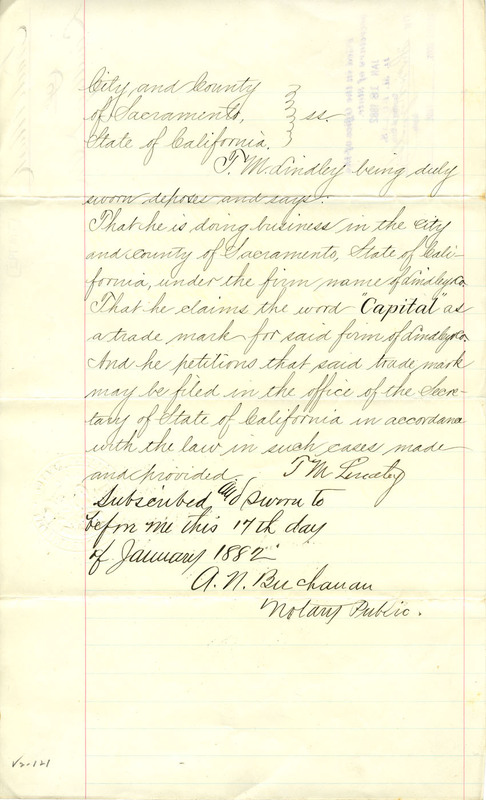 City and County
of Sacramento, ss.
State of California.
T. M. Lindley being duly
sworn deposes and says:
That he is doing business in the city
and county of Sacramento, State of Cali-
fornia, under the firm name of Lindley & Co.
That he claims the word "Capital" as
a trade mark for said firm of Lindley & Co.
And he petitions that said trade mark
may be filed in the office of the Secre-
tary of State of California in accordance
with the law in such cases made
and provided. T M Lindley
Subscribed and sworn to
before me this 17th day
of January 1882
A. N. Buchanan
Notary Public.
V2-121